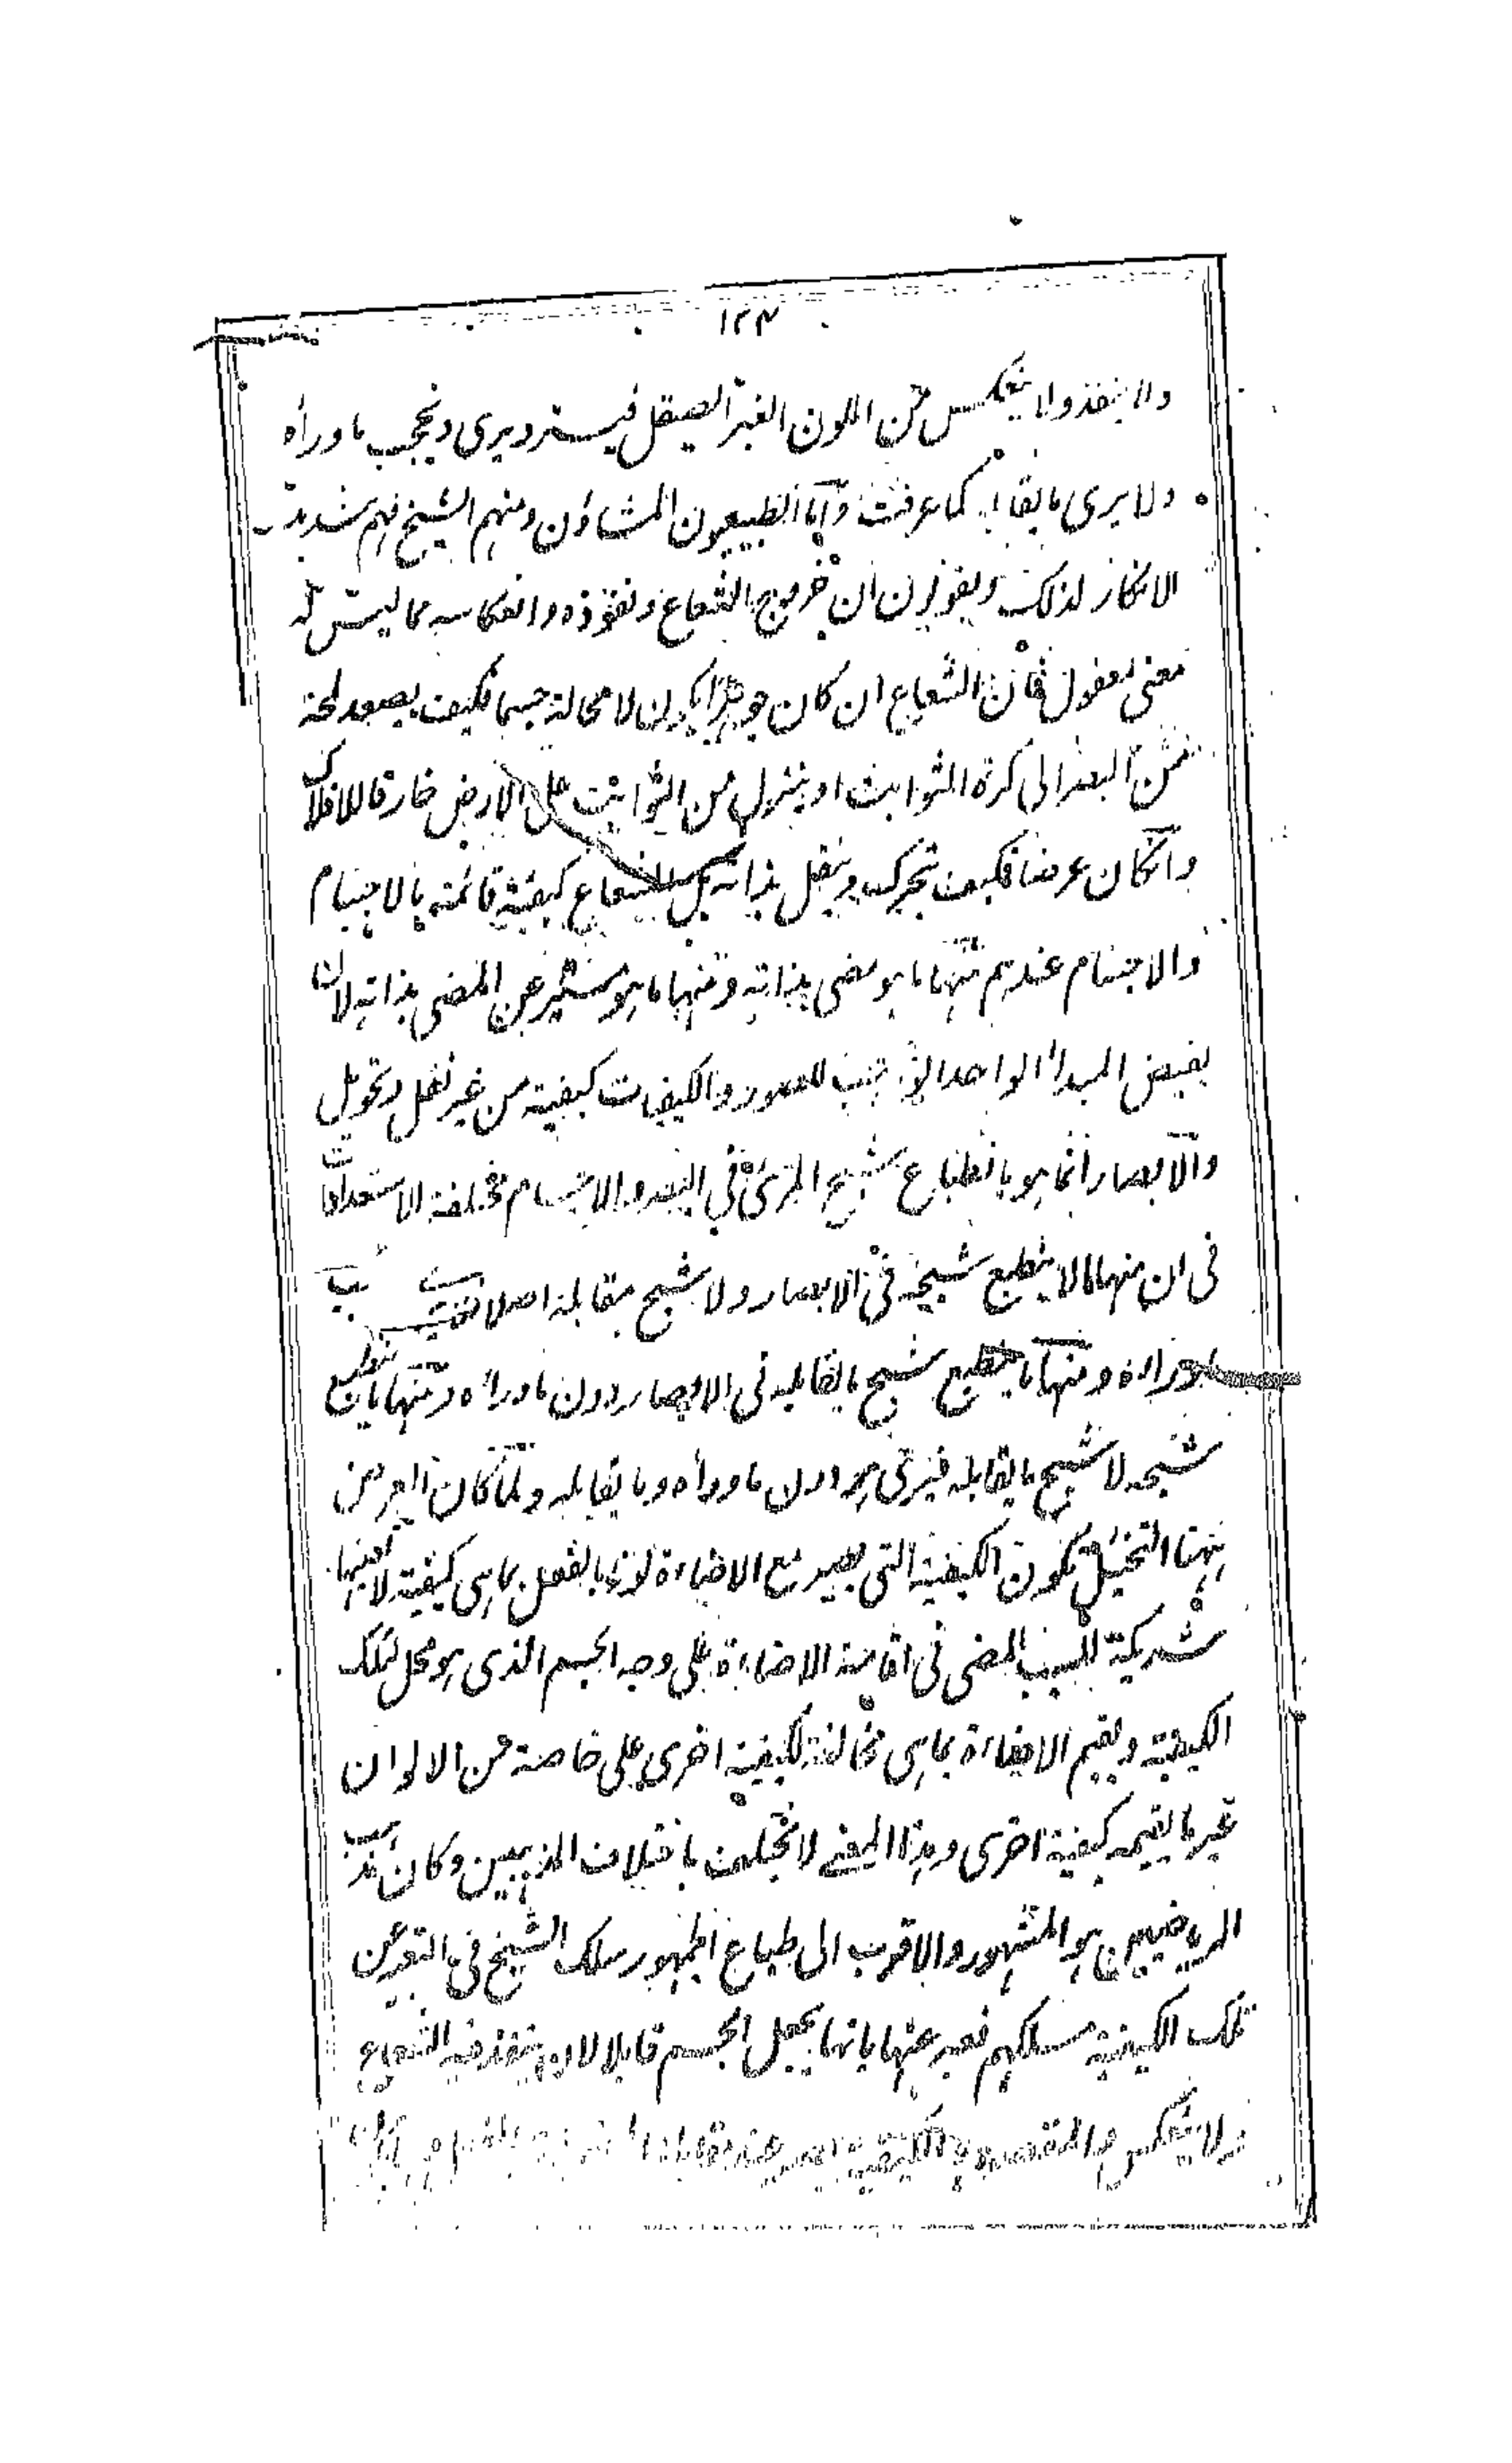 ١٢٣
ولا ينفذ ولا ينعكس من الملون الغير الصيقل فيستر ويرى ويحجب ما وراه
ولا يرى ما يقابله كما عرفت واما الطبيعيون المشاؤن ومنهم الشيخ فهم شديد
الانكار لذلك ويقولون ان خروج الشعاع ونفوذه وانعكاسه مما ليس له
معنى معقول فان الشعاع ان كان جوهرا يكون لا محالة جسما فكيف يصعد لمحة
من البصر الى كرة الثوابت او ينزل من الثوابت على الارض خارقا للافلاك
وانكان عرضا فكيف يتحرك وينتقل بذاته بل الشعاع كيفية قائمة بالاجسام
والاجسام عندهم منها ما هو مضى بذاته ومنها ما هو مستنير عن المضى بذاته لان
يفيض المبدأ الواحد الواهب للصور والكيفيات كيفية من غير نقل وتحويل
والابصار انما هو بانطباع شبح المرئى فى البصر والاجسام مختلفة الاستعدادات
فى ان منها ما لا ينطبع شبحه فى الابصار ولا شبح مقابله اصلا
ماوراه ومنها ما ينطبع شبح ما يقابله فى الابصار دون ما وراه ومنها ما ينطبع
شبحه لا شبح ما يقابله فيرى هو دون ما وراه وما يقابله ولما كان الغرض
ههنا التخييل بكون الكيفية التى يصير مع الاضاءة لونا بالفعل بما هى كيفية لا بعينها
شريكة للسبب المضى فى اقامة الاضاءة على وجه الجسم الذى هو محل لتلك
الكيفية ويقيم الاضاءة بما هى مخالفة لكيفية اخرى على خاصة من الالوان
غير ما يقيمه كيفية اخرى وهذا المعنى لا يختلف باختلاف المذهبين وكان مذهب
الرياضيين هو المشهور والاقرب الى طباع الجمهور سلك الشيخ فى التعبير عن
تلك الكيفية مسلكهم فعبر عنها بانها يجعل الجسم قابلا لان ينفذ فيه الشعاع
ولا ينعكس والمقصود الكيفية